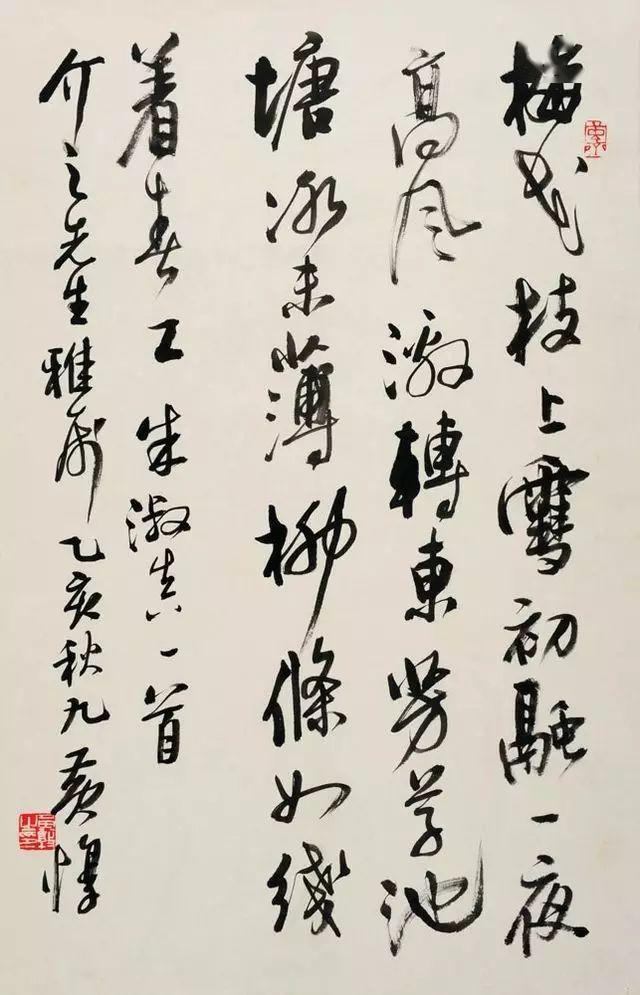 梅花枝上雪初融一夜
高风激转东芳草池
塘冰未薄柳條如线
着春工朱淑真一首
介之先生雅属乙亥秋九黄惇